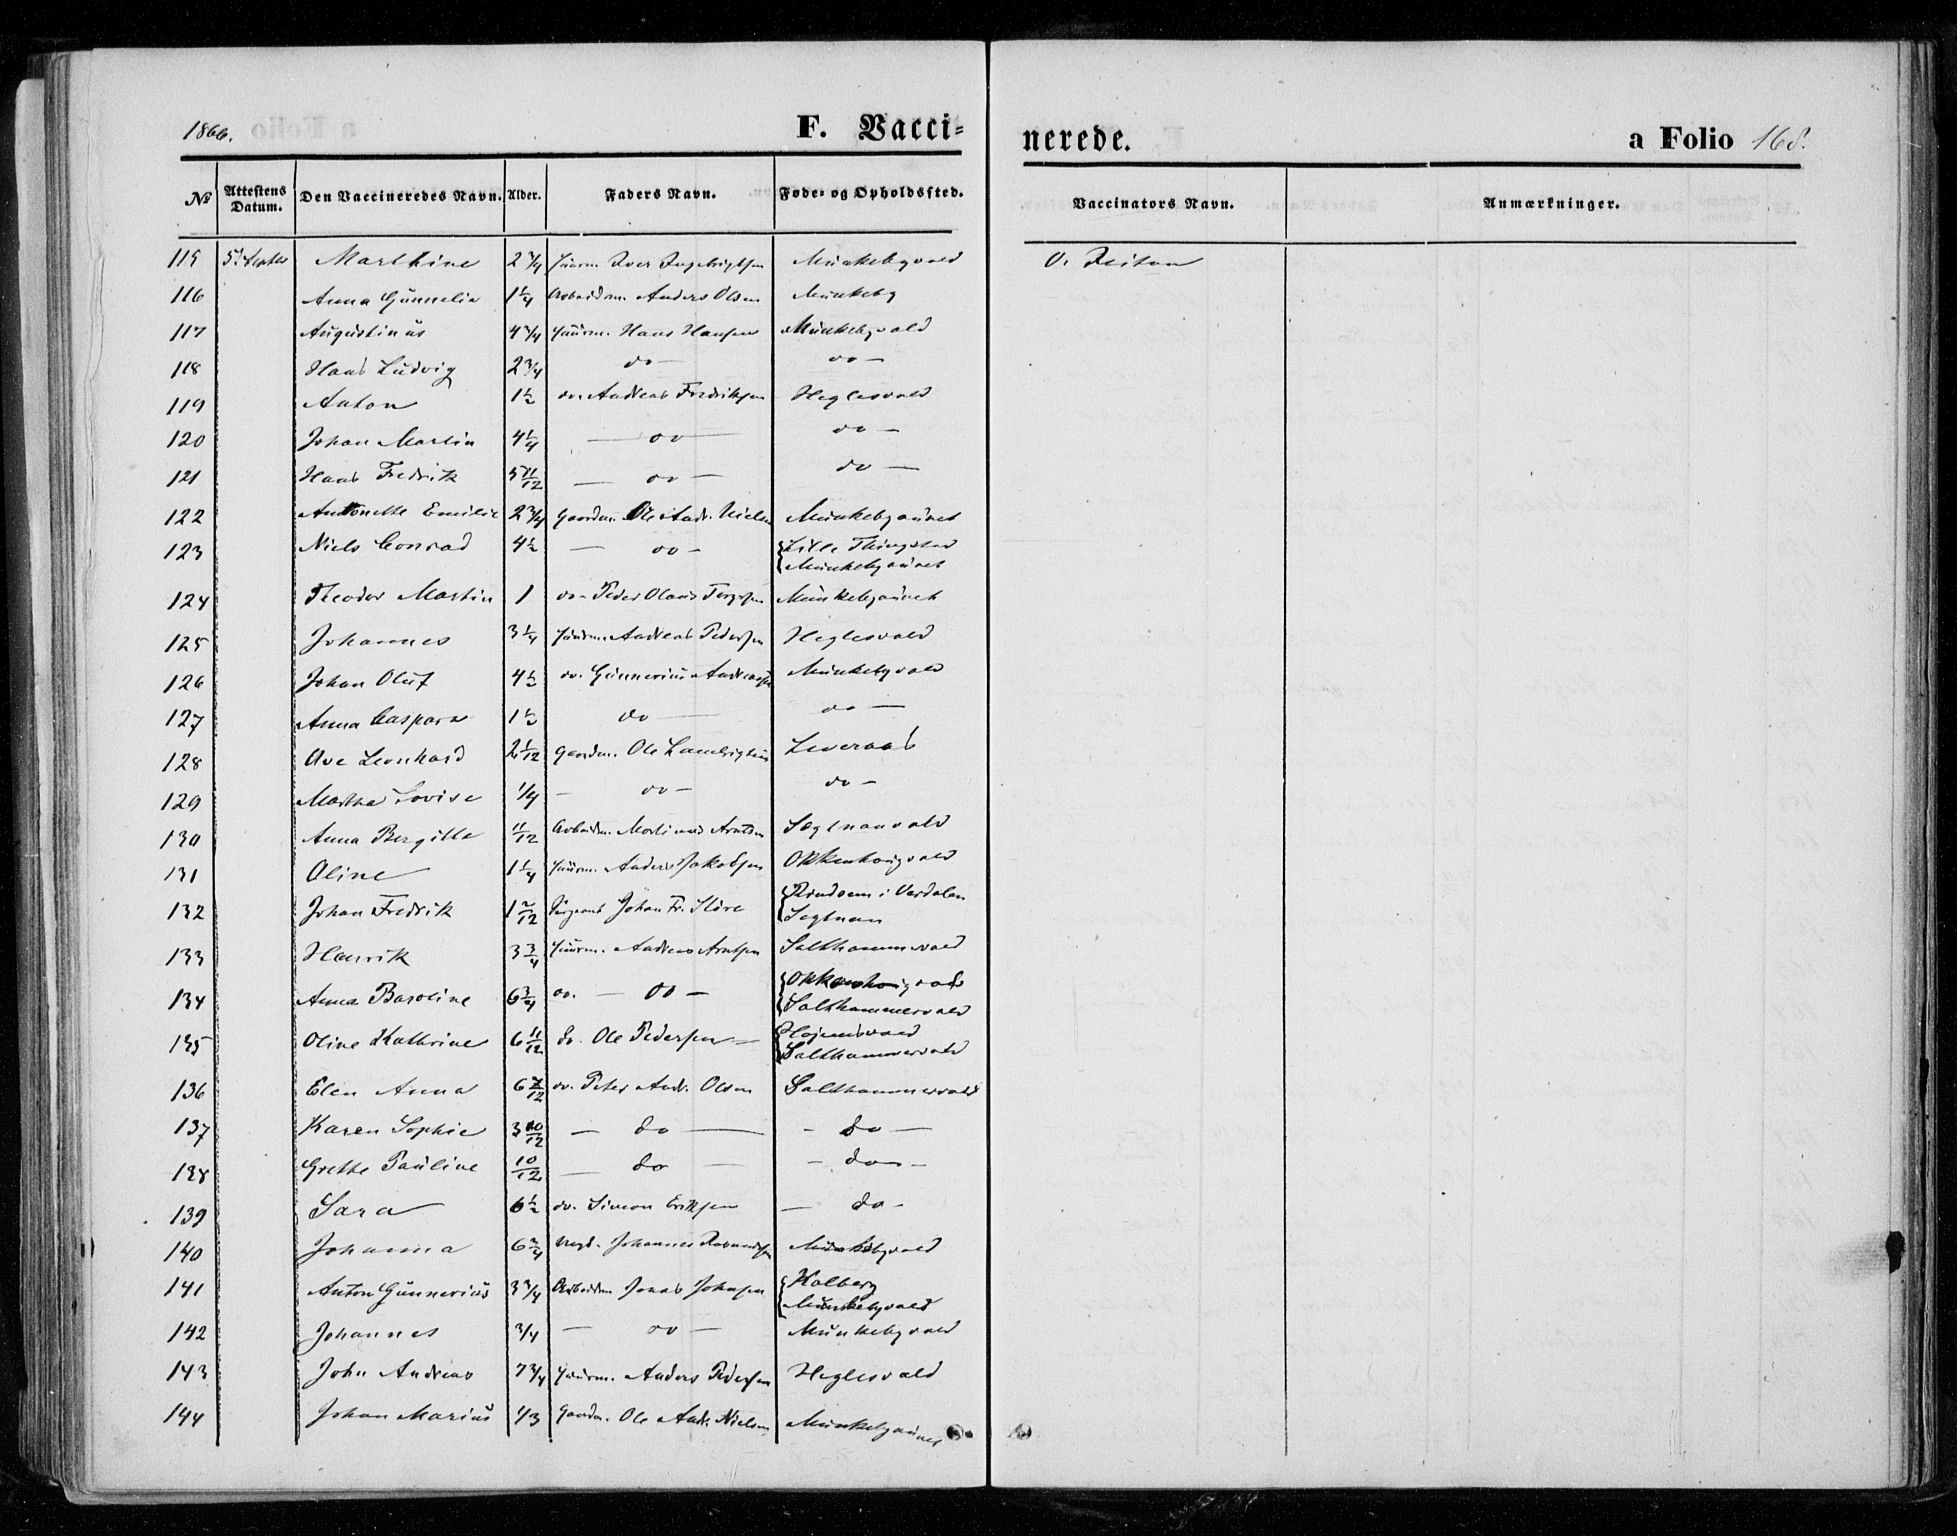 1866. F. Vacci=
nerede. a Folio 168.
№ Attestens Datum. Den Vaccineredes Navn. Alder. Faders Navn. Føde= og Opholdssted.
Vaccinators Navn. Anmærkninger.
115 5. Septbr Marthine 2 3/4 Huusm. Iver Ingebrigtsen Munkebyvald
116 Anna Günnelia 1 1/4 Arbeidsm. Anders Olsen Munkeby
117 Augustinus 4 3/4 Huusm. Hans Hansen Munkebyvald
118 Hans Ludvig 2 3/4 do — do —
119 Anton 1 1/2 do. Andreas Fredriksen Heglesvald
120 Johan Martin 4 1/4 — do — do —
121 Hans Fredrik 5 11/12 — do — do —
122 Antonette Emilie 2 3/4 Gaardm. Ole Andr. Nielsen Munkebyaunet
123 Niels Conrad 4 1/2 — do — { Lille Thingstad
{ Munkebyaunet
124 Theodor Martin 1 do – Peder Olaus Munkebyaunet
125 Johannes 3 1/4 Huusm. Andreas Pedersen Heglesvald
126 Johan Oluf 4 1/2 do. Günnerius Andreassen Munkebyvald
127 Anna Caspara 1 1/2 do — do —
128 Ove Leonhard 2 1/12 Gaardm. Ole Lambrigtsen Leveraas
129 Martha Lovise 1/4 — do — do —
130 Anna Bergitte 11/12 Arbeidsm. Martinus Arntsen Segtnanvald
131 Oline 1 1/4 Huusm. Anders Jakobsen Okkenhougvald
132 Johan Fredrik 1 7/12 Sergeant Johan Fr. Støre { Rindsem i Verdalen
{ Segtnan
133 Henrik 3 3/4 Huusm. Andreas Arntsen Salthammervald
134 Anna Baroline 6 3/4 do. — do — { Okkenhougvald
{ Salthammervald
135 Oline Kathrine 6 11/12 do. Ole Pedersen — { Hojemsvald
{ Salthammervald
136 Elen Anna 6 7/12 do. Peter Andr. Olsen Salthammervald
137 Karen Sophie 3 10/12 — do — – do —
138 Grethe Pauline 10/12 — do — – do –
139 Sara 6 1/2 do. Simon Eriksen — do –
140 Johanna 6 3/4 Johannes Munkebyvald
141 Anton Günnerius 3 3/4 Arbeidsm Jonas Johnsen { Holberg
{ Munkebyvald
142 Johannes 3/4 — do — Munkebyvald
143 John Andreas 7 3/4 Huusm. Anders Pedersen Heglesvald
144 Johan Marius 1/3 Gaardm. Ole Andr. Nielsen Munkebyaunet